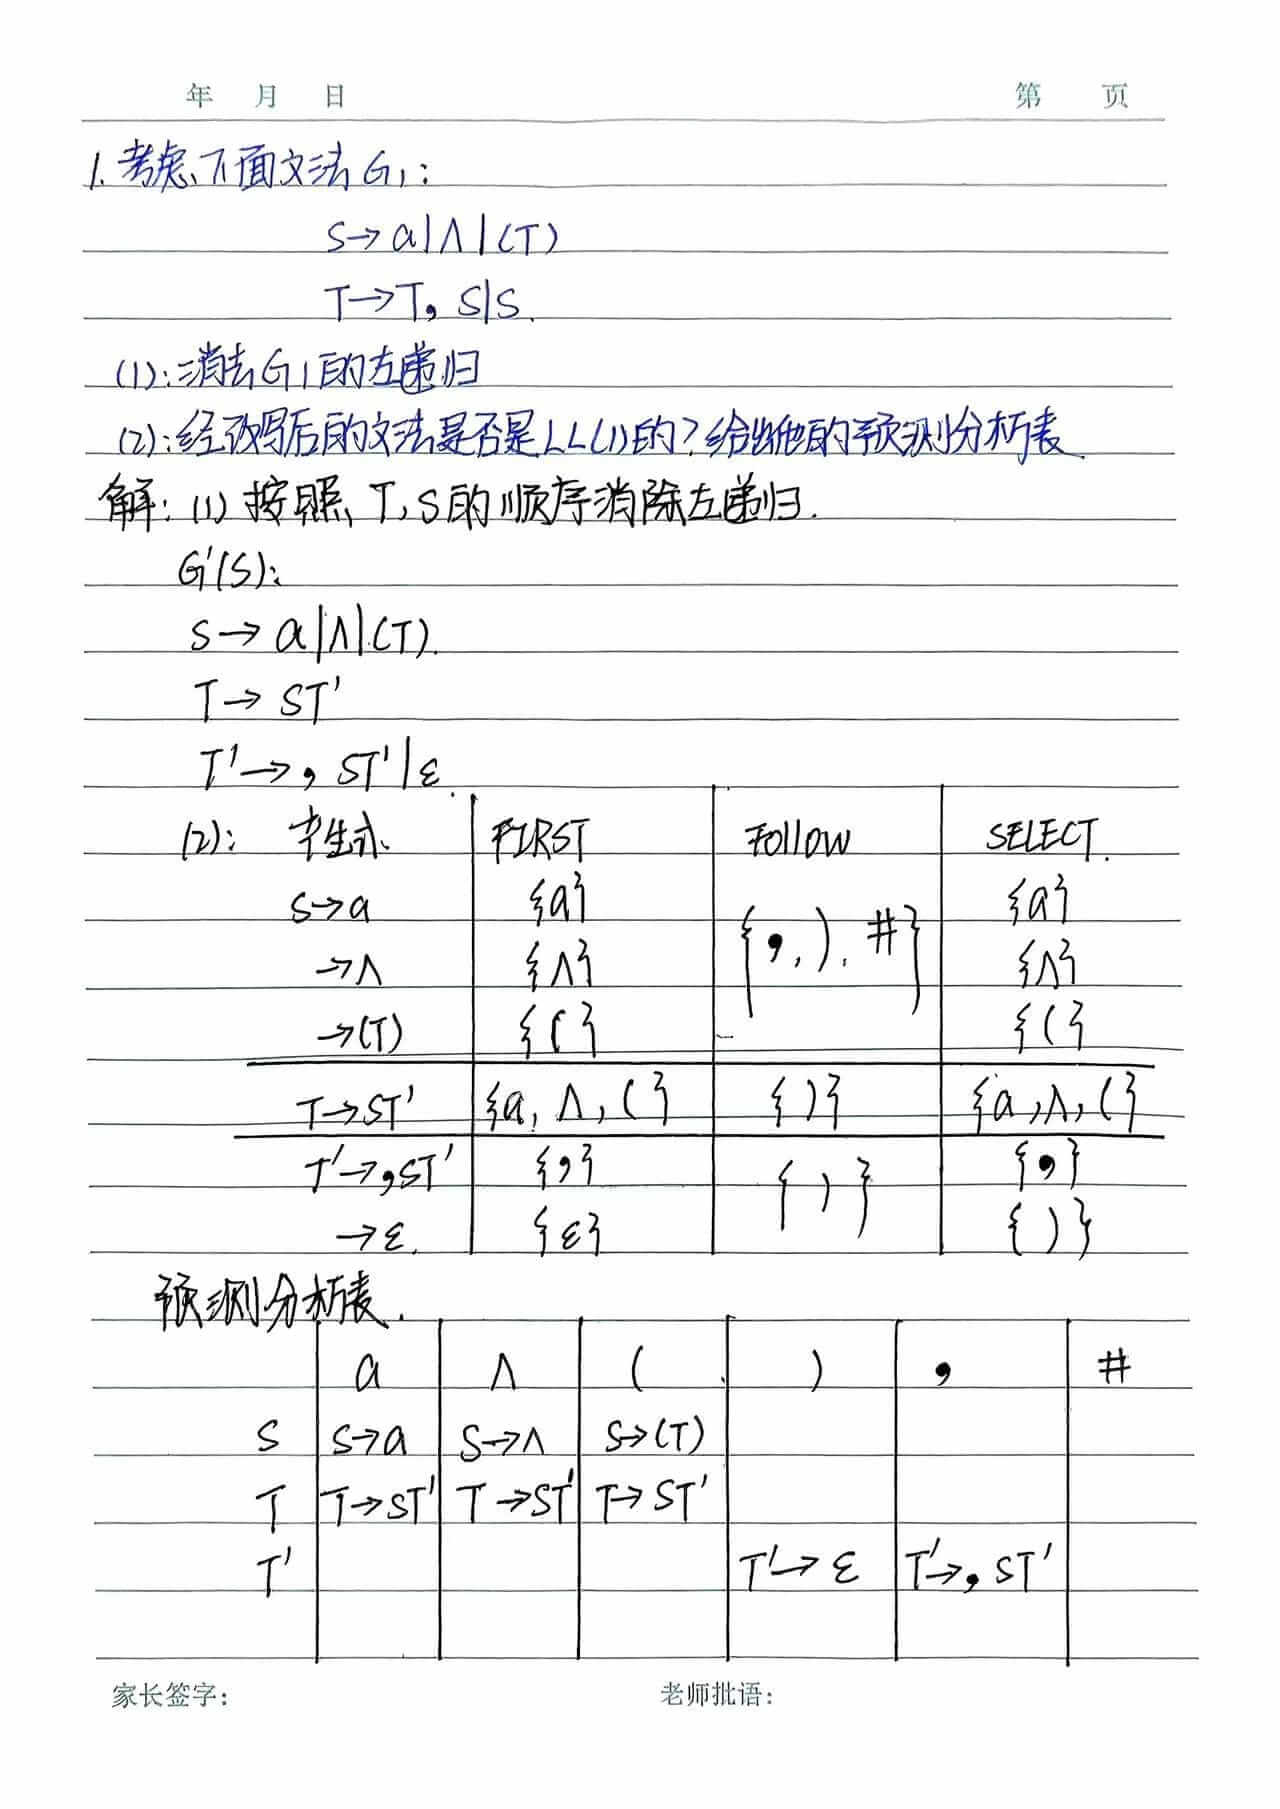 年 月 日 第 页
1. 考虑下面文法G1:
S→a|Λ|(T)
T→T, S|S.
(1):消去G1的左递归
(2):经改写后的文法是否是LL(1)的?给出他的预测分析表.
解: (1) 按照T,S的顺序消除左递归.
G'(S):
S→a|Λ|(T).
T→ST'
T'→, ST'|ε.
(2): 产生式 FIRST FOllOW SELECT.
S→a {a} {,, ). #} {a}
→Λ {Λ} {Λ}
→(T) {(} {(}
T→ST' {a, Λ, (} {)} {a, Λ, (}
T'→,ST' {,} {)} {,}
→ε. {ε} {)}
预测分析表.
a Λ ( ) , #
S S→a S→Λ S→(T)
T T→ST' T→ST' T→ST'
T' T'→ε T'→, ST'
家长签字: 老师批语: